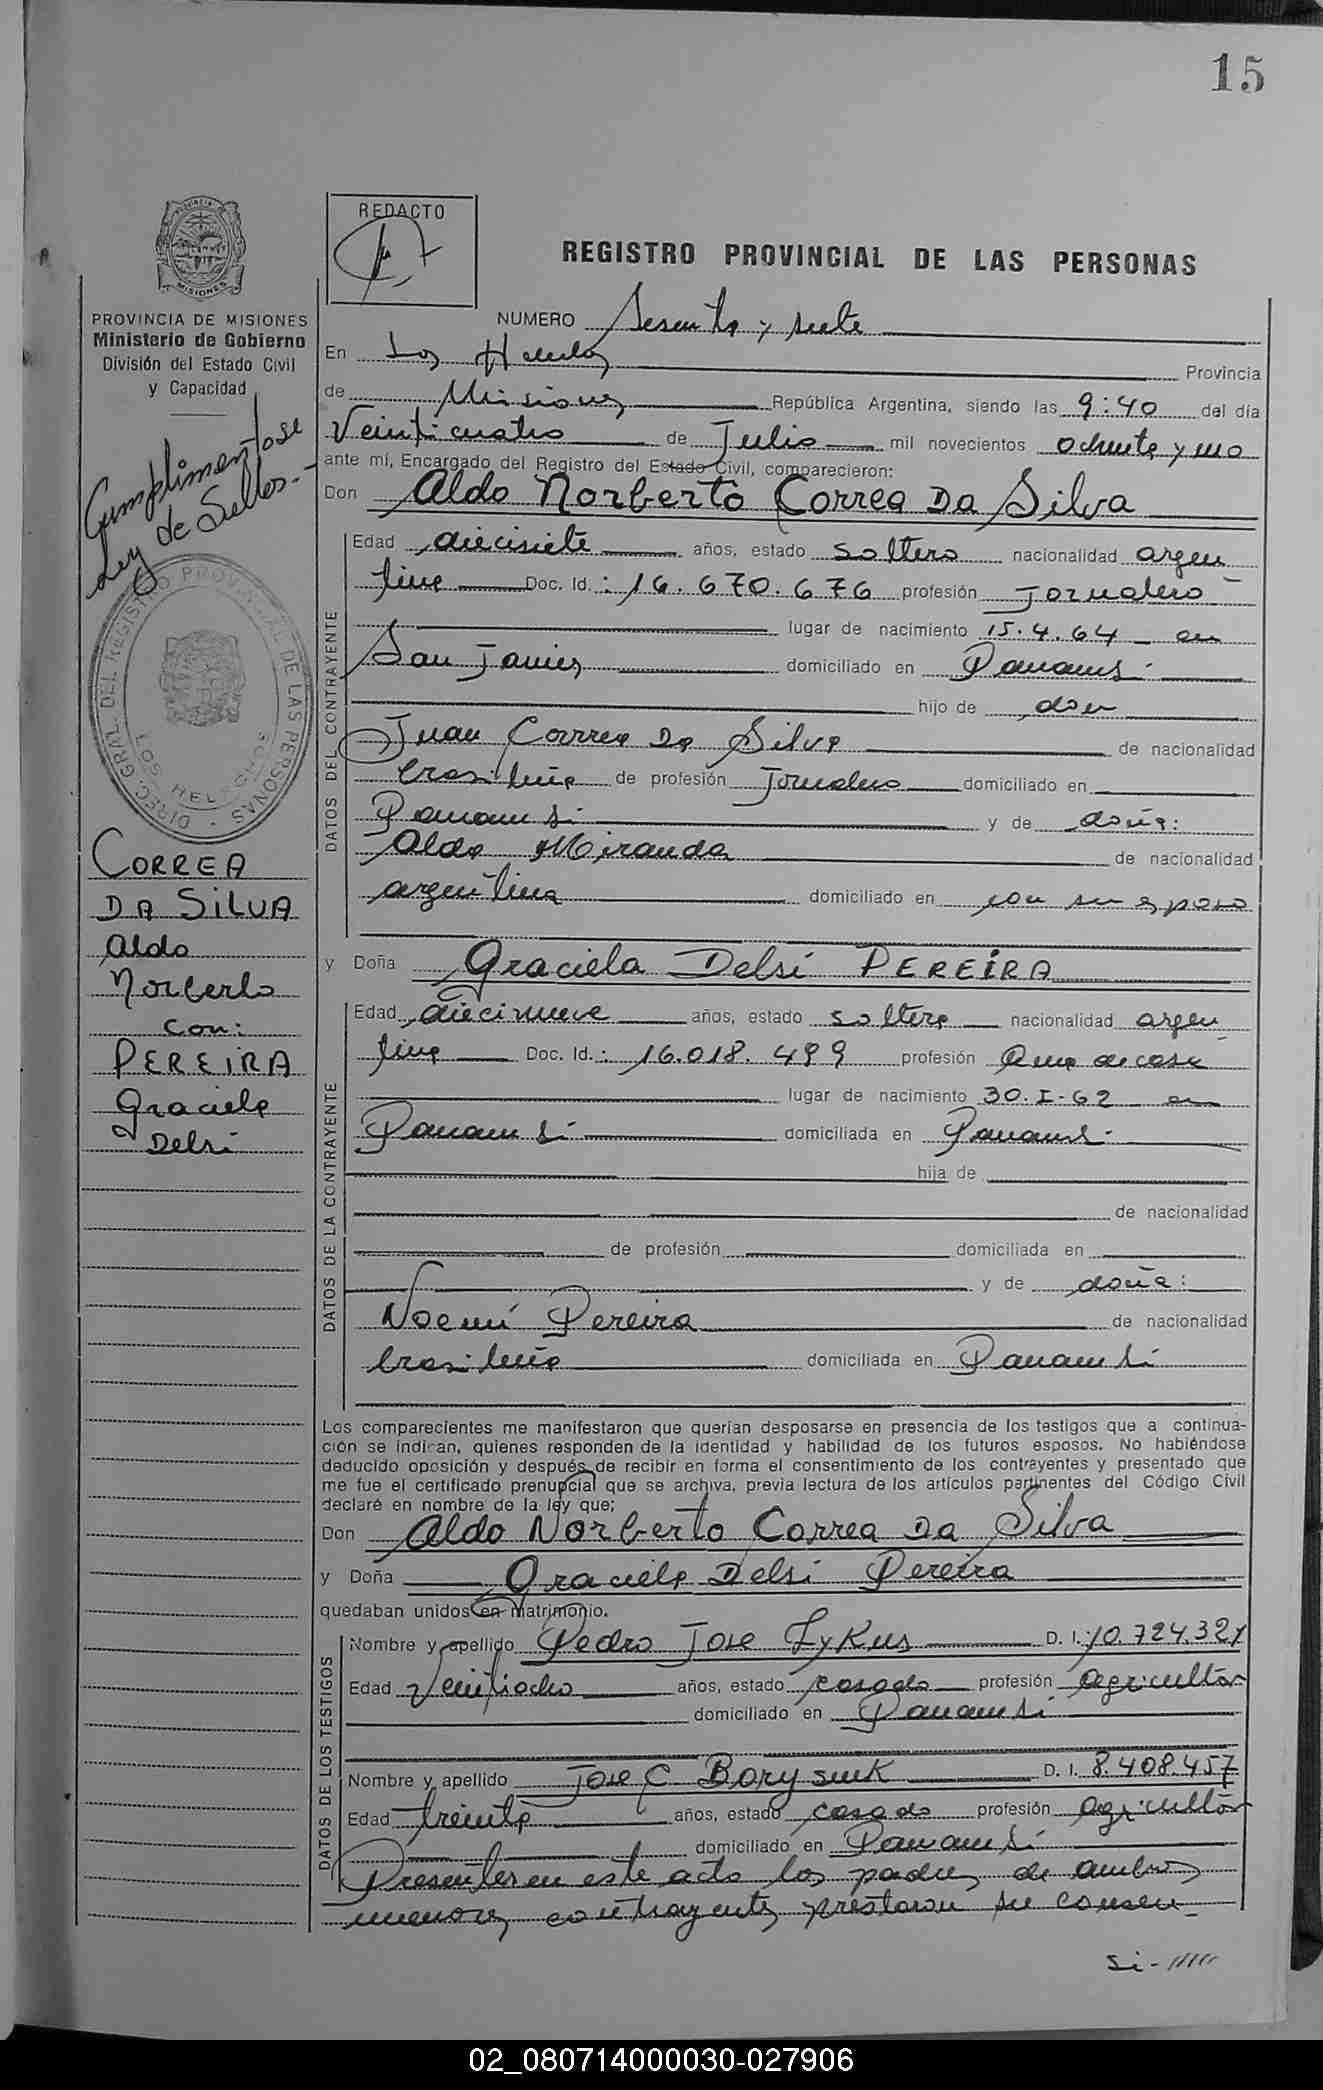 15
REDACTO
REGISTRO PROVINCIAL DE LAS PERSONAS
MISIONES
PROVINCIA DE MISIONES
Ministerio de Gobierno
División del Estado Civil
y Capacidad
Cumplimentose
Ley de Sellos.-
DIREC. GRAL. DEL REGISTRO PROVINCIAL DE LAS PERSONAS
LOS HELECHOS
CORREA
DA SILVA
Aldo
Norberto
con:
PEREIRA
Graciela
Delsi
NUMERO Sesenta y siete
En Los Helechos Provincia
de Misiones República Argentina, siendo las 9:40 del día
Veinticuatro de Julio mil novecientos ochenta y uno
ante mí, Encargado del Registro del Estado Civil, comparecieron:
Don Aldo Norberto Correa Da Silva
DATOS DEL CONTRAYENTE
Edad diecisiete años, estado soltero nacionalidad argen
tina Doc. Id.: 16.670.676 profesión Jornalero
lugar de nacimiento 15.4.64 en
San Javier domiciliado en Panambí
hijo de don
Juan Correa Da Silva de nacionalidad
brasileña de profesión Jornalero domiciliado en
Panambí y de doña:
Alda Miranda de nacionalidad
argentina domiciliado en con su esposo
y Doña Graciela Delsi PEREIRA
DATOS DE LA CONTRAYENTE
Edad diecinueve años, estado soltera nacionalidad argen
tina Doc. Id.: 16.018.499 profesión Ama de casa
lugar de nacimiento 30.I-62 en
Panambí domiciliada en Panambí
hija de
de nacionalidad
de profesión domiciliada en
y de doña:
Noemí Pereira de nacionalidad
brasileña domiciliada en Panambí
Los comparecientes me manifestaron que querían desposarse en presencia de los testigos que a continua-
ción se indican, quienes responden de la identidad y habilidad de los futuros esposos. No habiéndose
deducido oposición y después de recibir en forma el consentimiento de los contrayentes y presentado que
me fue el certificado prenupcial que se archiva, previa lectura de los artículos pertinentes del Código Civil
declaré en nombre de la ley que;
Don Aldo Norberto Correa Da Silva
y Doña Graciela Delsi Pereira
quedaban unidos en matrimonio.
DATOS DE LOS TESTIGOS
Nombre y apellido Pedro Jose Lykus D. I. 10.724.321
Edad Veintiocho años, estado casado profesión agricultor
domiciliado en Panambí
Nombre y apellido Jose C Borysiuk D. I. 8.408.457
Edad treinta años, estado casado profesión agricultor
domiciliado en Panambí
Presentes en este acto los padres de ambos
menores contrayentes prestaron su consen-
si-/////
02_080714000030-027906